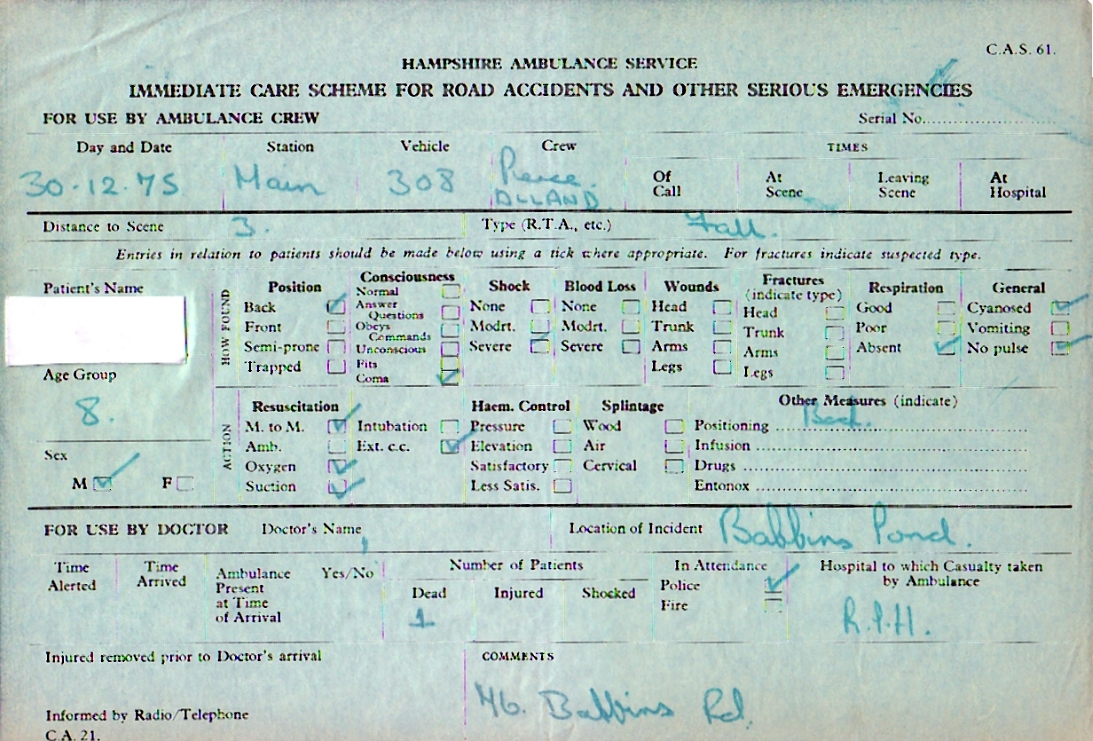 C.A.S. 61.
HAMPSHIRE AMBULANCE SERVICE
IMMEDIATE CARE SCHEME FOR ROAD ACCIDENTS AND OTHER SERIOUS EMERGENCIES
FOR USE BY AMBULANCE CREW Serial No.
Day and Date Station Vehicle Crew TIMES
30·12·75 Main 308
Of Call At Scene Leaving Scene At Hospital
Distance to Scene 3. Type (R.T.A., etc.) Fall.
Entries in relation to patients should be made below using a tick where appropriate. For fractures indicate suspected type.
Patient's Name
Age Group
8.
Sex
M F
HOW FOUND
Position
Back
Front
Semi-prone
Trapped
Consciousness
Normal
Answer Questions
Obeys Commands
Unconscious
Fits
Coma
Shock
None
Modrt.
Severe
Blood Loss
None
Modrt.
Severe
Wounds
Head
Trunk
Arms
Legs
Fractures
(indicate type)
Head
Trunk
Arms
Legs
Respiration
Good
Poor
Absent
General
Cyanosed
Vomiting
No pulse
ACTION
Resuscitation
M. to M. Intubation
Amb. Ext. c.c.
Oxygen
Suction
Haem. Control
Pressure
Elevation
Satisfactory
Less Satis.
Splintage
Wood
Air
Cervical
Other Measures (indicate)
Positioning Back.
Infusion
Drugs
Entonox
FOR USE BY DOCTOR Doctor's Name Location of Incident Babbins Pond.
Time Alerted
Time Arrived
Ambulance Present at Time of Arrival
Yes/No
Number of Patients
Dead Injured Shocked
1
In Attendance
Police
Fire
Hospital to which Casualty taken
by Ambulance
Injured removed prior to Doctor's arrival
COMMENTS
46. Babbins Rd.
Informed by Radio/Telephone
C.A. 21.